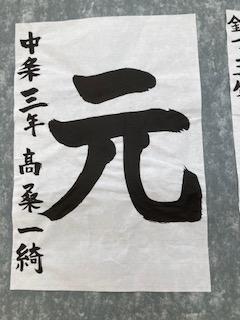 元
中条三年 高桑一綺